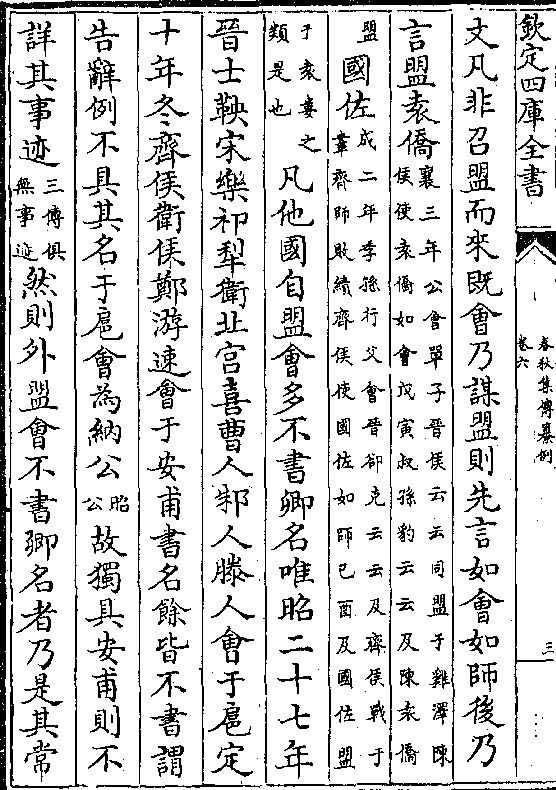 欽定四庫全書
春秋集傳纂例
卷六
三
文凡非召盟而來既會乃謀盟則先言如會如師後乃
言盟袁僑襄三年公會單子晉侯云云同盟于雞澤陳侯使袁僑如會戊寅叔孫豹云云及陳袁僑
盟國佐成二年季孫行父會晉郤克云云及齊侯戰于鞌齊師敗績齊侯使國佐如師己酉及國佐盟
于袁婁之類是也凡他國自盟會多不書卿名唯昭二十七年
晉士鞅宋樂祁犁衛北宮喜曹人邾人滕人會于扈定
十年冬齊侯衛侯鄭游速會于安甫書名餘皆不書謂
告辭例不具其名于扈會為納公昭公故獨具安甫則不
詳其事迹三傳俱無事迹然則外盟會不書卿名者乃是其常